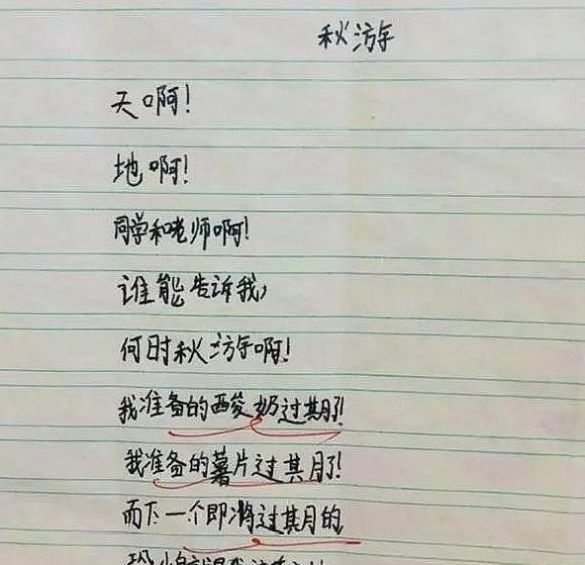 秋游
天啊！
地啊！
同学和老师啊！
谁能告诉我，
何时秋游啊！
我准备的酸奶过期了！
我准备的薯片过期了！
而下一个即将过期的
恐怕